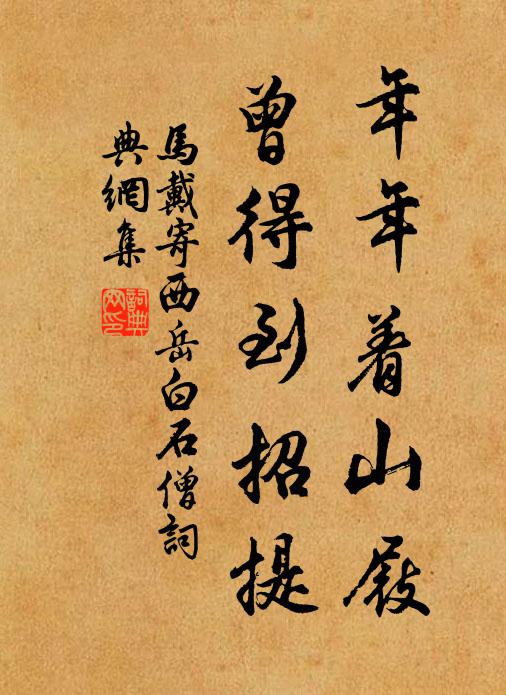 年年着山屐
曾得到招提
馬戴寄西岳白石僧詞
典網集
詞典
网印